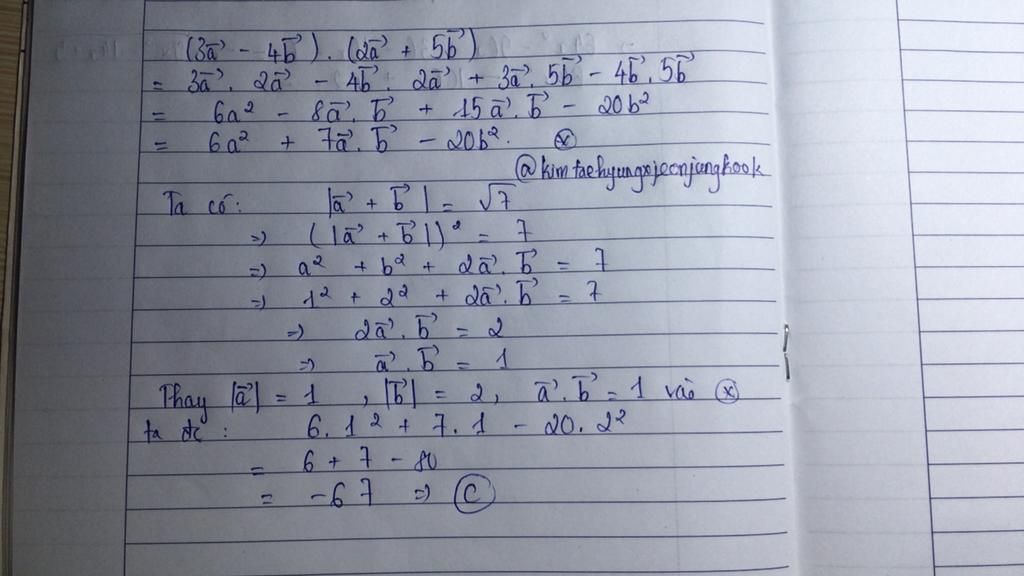 (3a⃗ - 4b⃗) . (2a⃗ + 5b⃗)
= 3a⃗ . 2a⃗ - 4b⃗ . 2a⃗ + 3a⃗ . 5b⃗ - 4b⃗ . 5b⃗
= 6a² - 8a⃗ . b⃗ + 15a⃗ . b⃗ - 20b²
= 6a² + 7a⃗ . b⃗ - 20b². ⊗
@kimtaehyungxjeonjungkook
Ta có: |a⃗ + b⃗| = √7
=> (|a⃗ + b⃗|)² = 7
=> a² + b² + 2a⃗ . b⃗ = 7
=> 1² + 2² + 2a⃗ . b⃗ = 7
=> 2a⃗ . b⃗ = 2
=> a⃗ . b⃗ = 1
Thay |a⃗| = 1 , |b⃗| = 2, a⃗ . b⃗ = 1 vào ⊗
ta đc : 6.1² + 7.1 - 20.2²
= 6 + 7 - 80
= -67 => Ⓒ